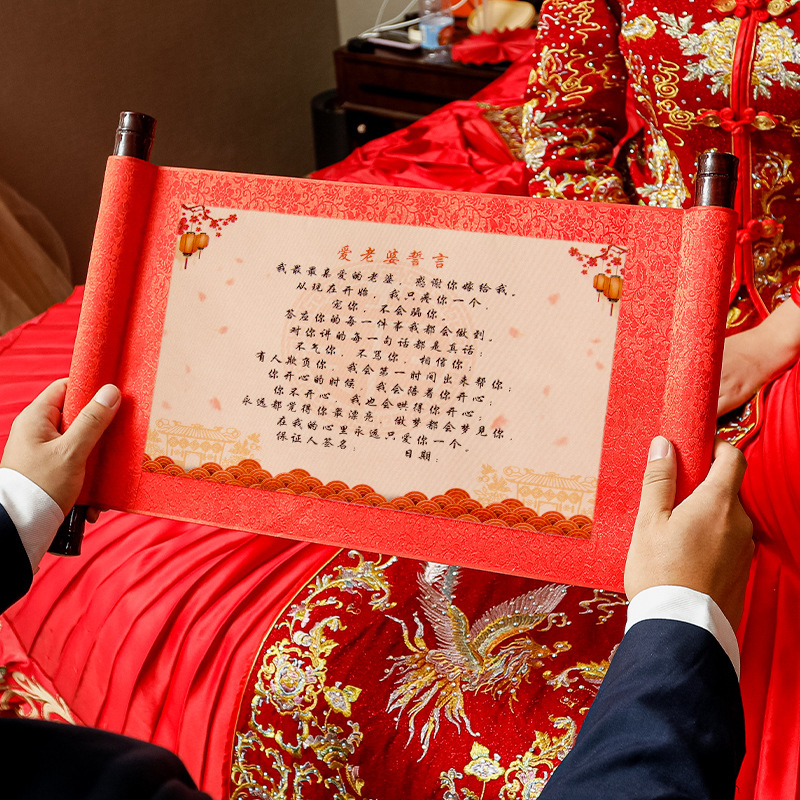 爱老婆誓言
我最最亲爱的老婆，感谢你嫁给我。
从现在开始，我只疼你一个，
宠你，不会骗你。
答应你的每一件事我都会做到。
对你讲的每一句话都是真话；
不气你，不骂你，相信你；
有人欺负你，我会第一时间出来帮你；
你开心的时候，我会陪着你开心；
你不开心，我也会哄得你开心；
永远都觉得你最漂亮，做梦都会梦见你，
在我的心里永远只爱你一个。
保证人签名： 日期：